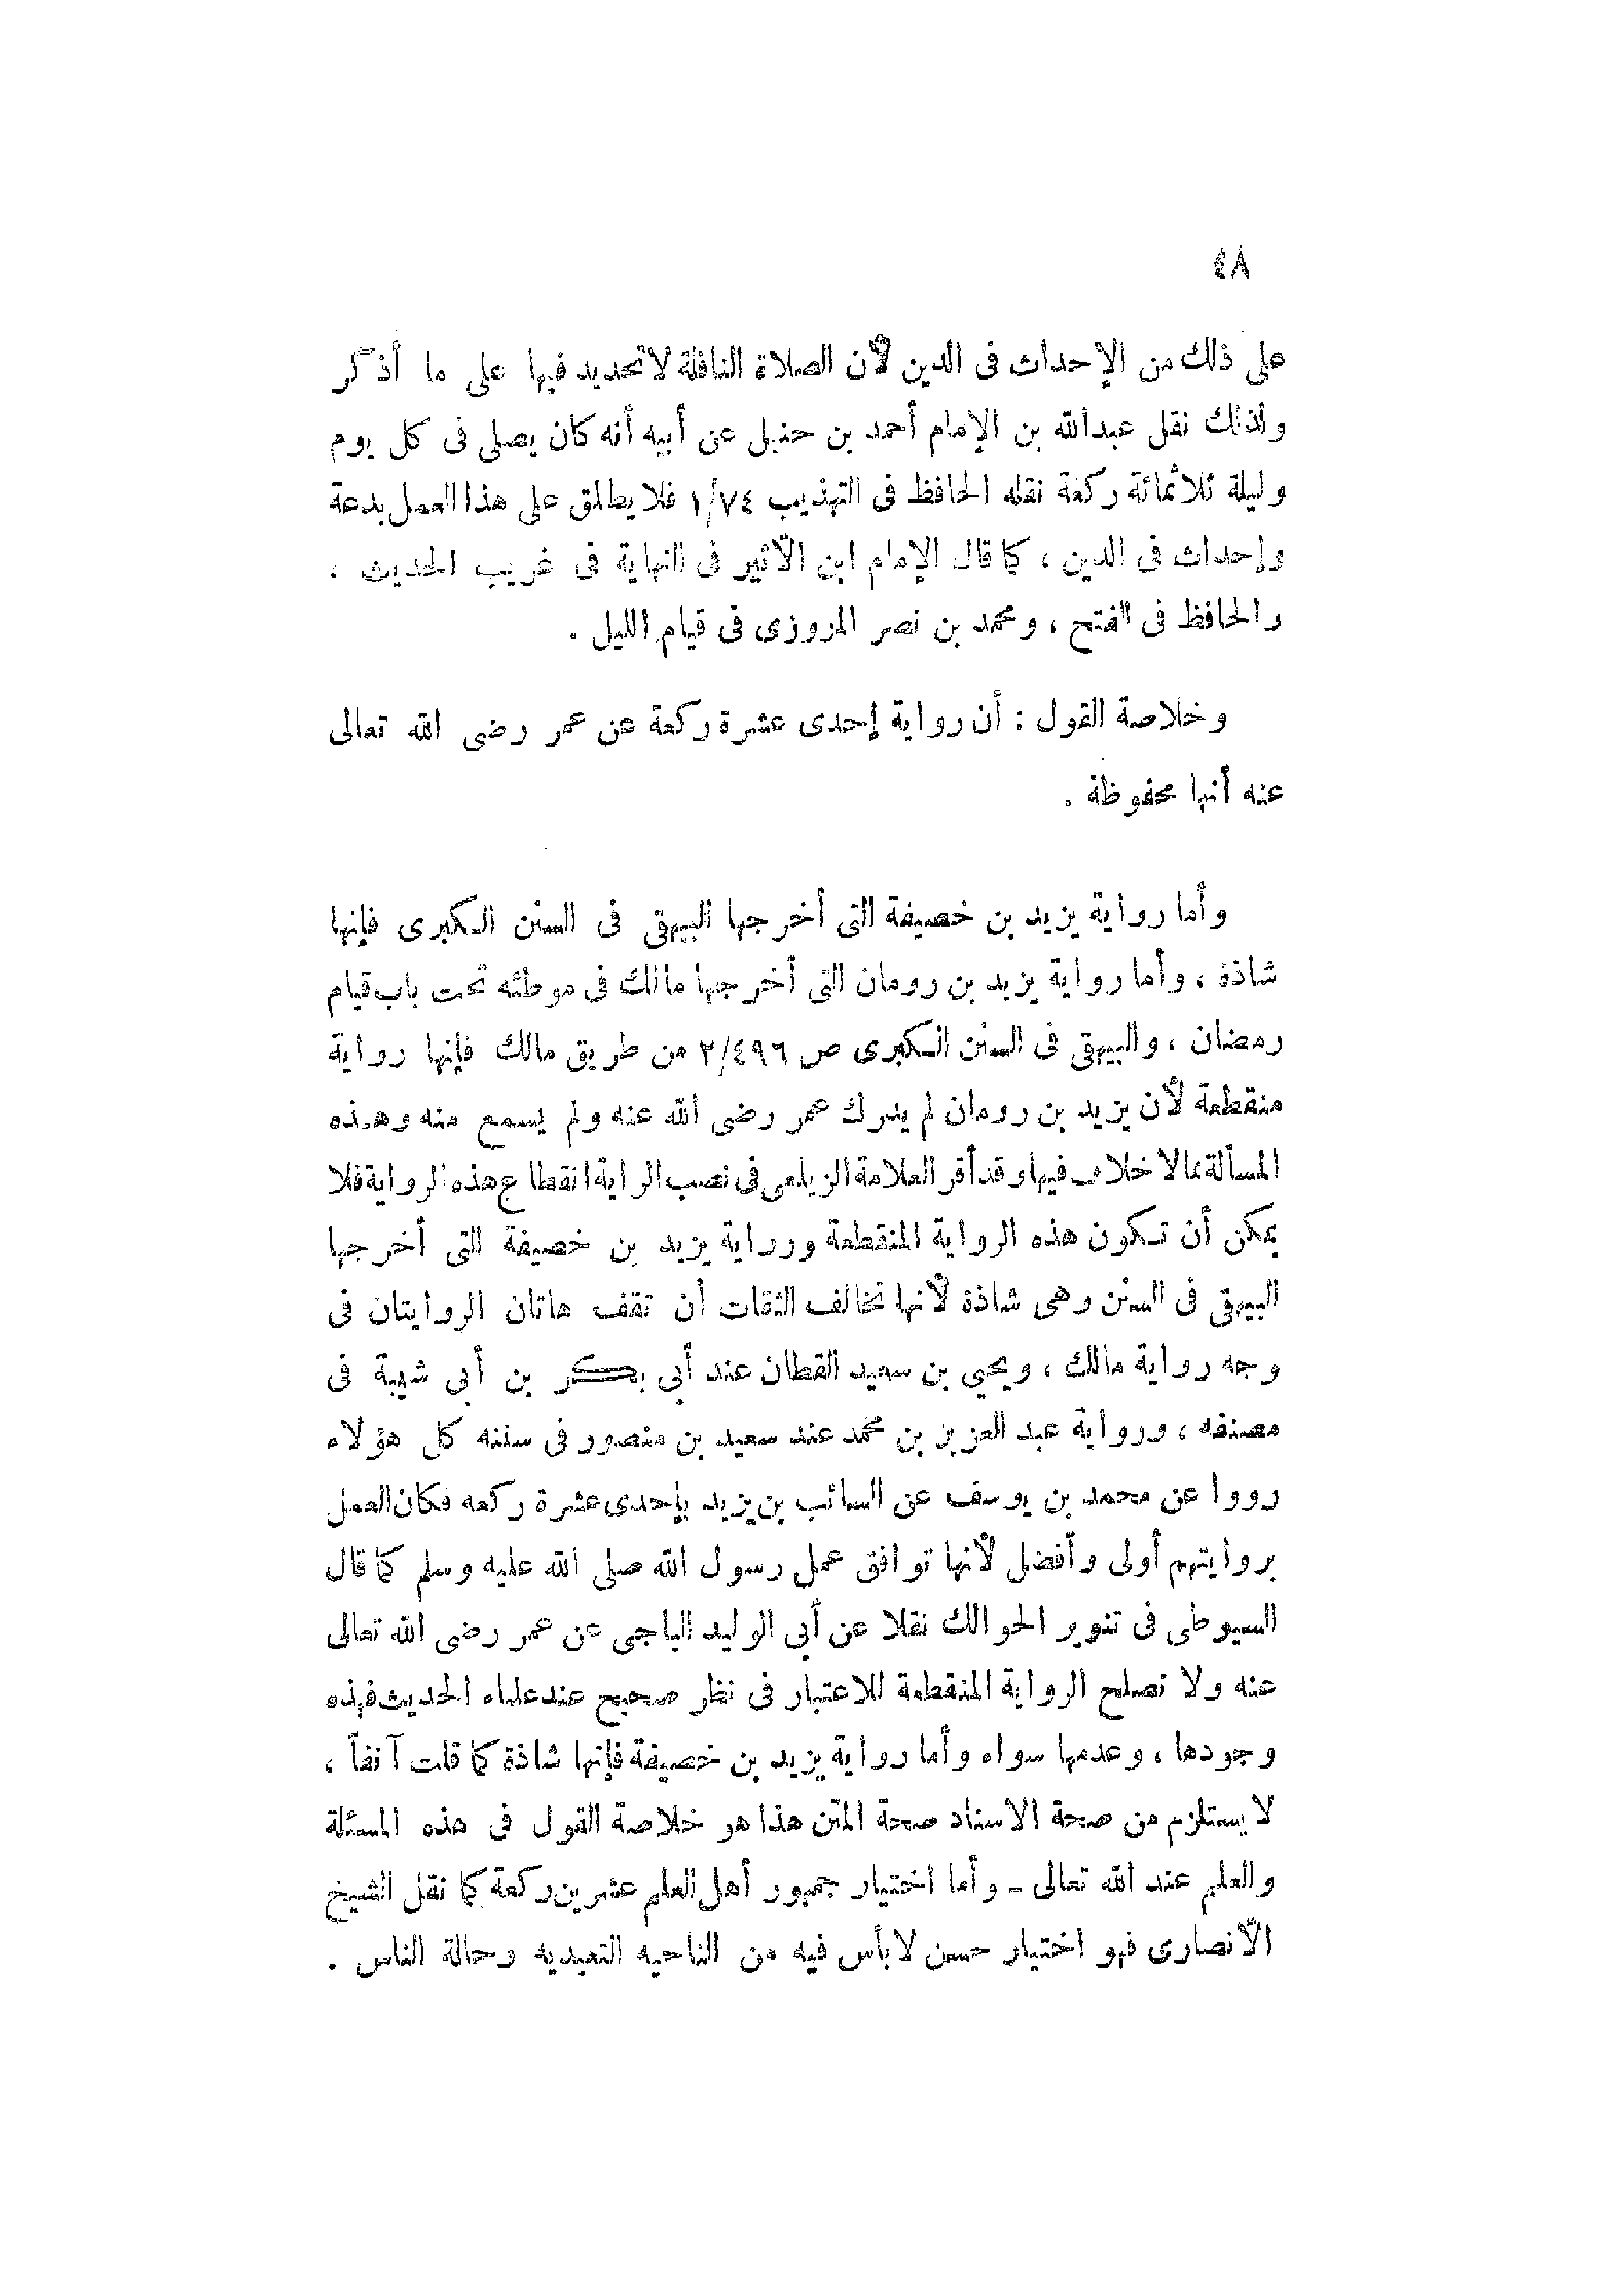 ٤٨
على ذلك من الإحداث فى الدين لأن الصلاة النافلة لا تحديد فيها على ما أذكر
ولذلك نقل عبدالله بن الإمام أحمد بن حنبل عن أبيه أنه كان يصلى فى كل يوم
وليلة ثلاثمائة ركعة نقله الحافظ فى التهذيب ١/٧٤ فلا يطلق على هذا العمل بدعة
وإحداث فى الدين ، كما قال الإمام ابن الأثير فى النهاية فى غريب الحديث ،
والحافظ فى الفتح ، ومحمد بن نصر المروزى فى قيام الليل .
وخلاصة القول : أن رواية إحدى عشرة ركعة عن عمر رضى الله تعالى
عنه أنها محفوظة .
وأما رواية يزيد بن خصيفة التى أخرجها البيهقى فى السنن الكبرى فإنها
شاذة ، وأما رواية يزيد بن رومان التى أخرجها مالك فى موطئه تحت باب قيام
رمضان ، والبيهقى فى السنن الكبرى ص ٢/٤٩٦ من طريق مالك فإنها رواية
منقطعة لأن يزيد بن رومان لم يدرك عمر رضى الله عنه ولم يسمع منه وهذه
المسألة مما لا خلاف فيها وقد أقر العلامة الزيلعى فى نصب الراية انقطاع هذه الرواية فلا
يمكن أن تكون هذه الرواية المنقطعة ورواية يزيد بن خصيفة التى أخرجها
البيهقى فى السنن وهى شاذة لأنها تخالف الثقات أن تقف هاتان الروايتان فى
وجه رواية مالك ، ويحيى بن سعيد القطان عند أبى بكر بن أبى شيبة فى
مصنفه ، ورواية عبد العزيز بن محمد عند سعيد بن منصور فى سننه كل هؤلاء
رووا عن محمد بن يوسف عن السائب بن يزيد بإحدى عشرة ركعه فكان العمل
بروايتهم أولى وأفضل لأنها توافق عمل رسول الله صلى الله عليه وسلم كما قال
السيوطى فى تنوير الحوالك نقلا عن أبى الوليد الباجى عن عمر رضى الله تعالى
عنه ولا تصلح الرواية المنقطعة للاعتبار فى نظر صحيح عند علماء الحديث فهذه
وجودها ، وعدمها سواء وأما رواية يزيد بن خصيفة فإنها شاذة كما قلت آنفاً ،
لا يستلزم من صحة الاسناد صحة المتن هذا هو خلاصة القول فى هذه المسئلة
والعلم عند الله تعالى ـ وأما اختيار جمهور أهل العلم عشرين ركعة كما نقل الشيخ
الأنصارى فهو اختيار حسن لا بأس فيه من الناحيه التعبديه وحالة الناس .